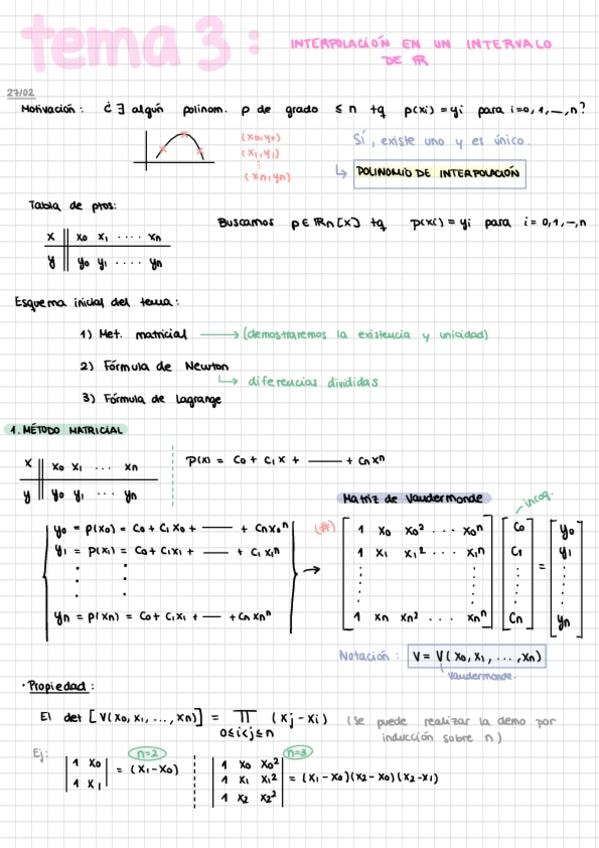 tema 3:
INTERPOLACIÓN EN UN INTERVALO
DE ℝ
27/02
Motivación: ¿∃ algún polinom. p de grado ≤ n tq p(xi) = yi para i=0,1,—,n?
(x0,y0)
(x1,y1)
⋮
(xn,yn)
Sí, existe uno y es único.
↳ POLINOMIO DE INTERPOLACIÓN
Tabla de ptos:
x || x0 x1 ···· xn
y || y0 y1 ···· yn
Buscamos p∈ℝn[x] tq p(xi) = yi para i=0,1,—,n
Esquema inicial del tema:
1) Met. matricial → (demostraremos la existencia y unicidad)
2) Fórmula de Newton
↳ diferencias divididas
3) Fórmula de Lagrange
1. MÉTODO MATRICIAL
x || x0 x1 ··· xn
y || y0 y1 ··· yn
p(x) = C0 + C1x + —— + Cnxⁿ
Matriz de Vandermonde
incog.
y0 = p(x0) = C0 + C1x0 + —— + Cnx0ⁿ
y1 = p(x1) = C0 + C1x1 + —— + C1x1ⁿ
⋮ ⋮
yn = p(xn) = C0 + C1x1 + — + Cnxnⁿ
→
(#)
1 x0 x0² ··· x0ⁿ
1 x1 x1² ··· x1ⁿ
⋮ ⋮
1 xn xn² ··· xnⁿ
C0
C1
⋮
Cn
=
y0
y1
⋮
yn
Notación: V = V(x0,x1,...,xn)
Vandermonde.
· Propiedad:
El det [V(x0,x1,...,xn)] = ∏ (xj - xi) (Se puede realizar la demo por
0≤i<j≤n inducción sobre n)
Ej:
n=2
|1 x0|
|1 x1| = (x1-x0)
n=3
|1 x0 x0²|
|1 x1 x1²| = (x1-x0)(x2-x0)(x2-x1)
|1 x2 x2²|